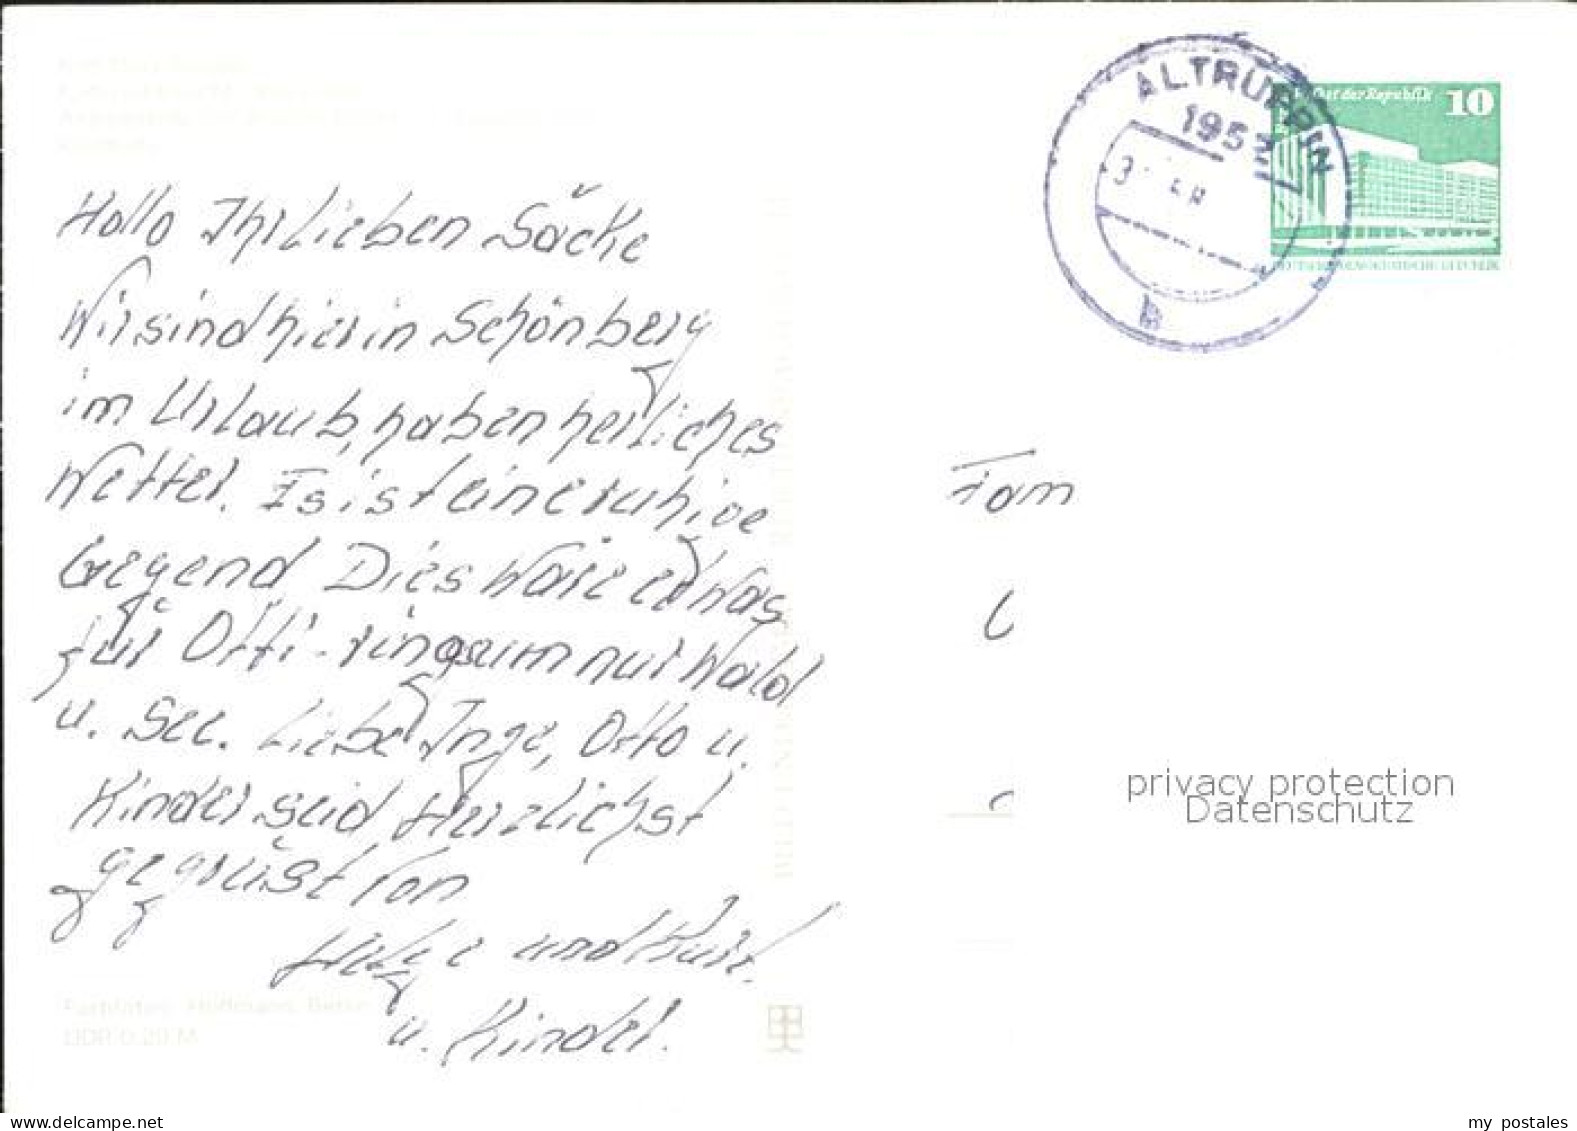 Hallo Ihr Lieben Säcke
Wir sind hier in Schönberg
im Urlaub, haben herrliches
Wetter. Es ist eine ruhige
Gegend Dies wäre etwas
für Otti - ringsum nur Wald
u. See. Liebe Inge, Otto u.
Kinder seid Herzlichst
gegrüßt von
und Kurt.
u. Kinder.
ALTRUPPIN
195
B
der Republik 10
Fam
privacy protection
Datenschutz
DDR 0,20 M
my postales